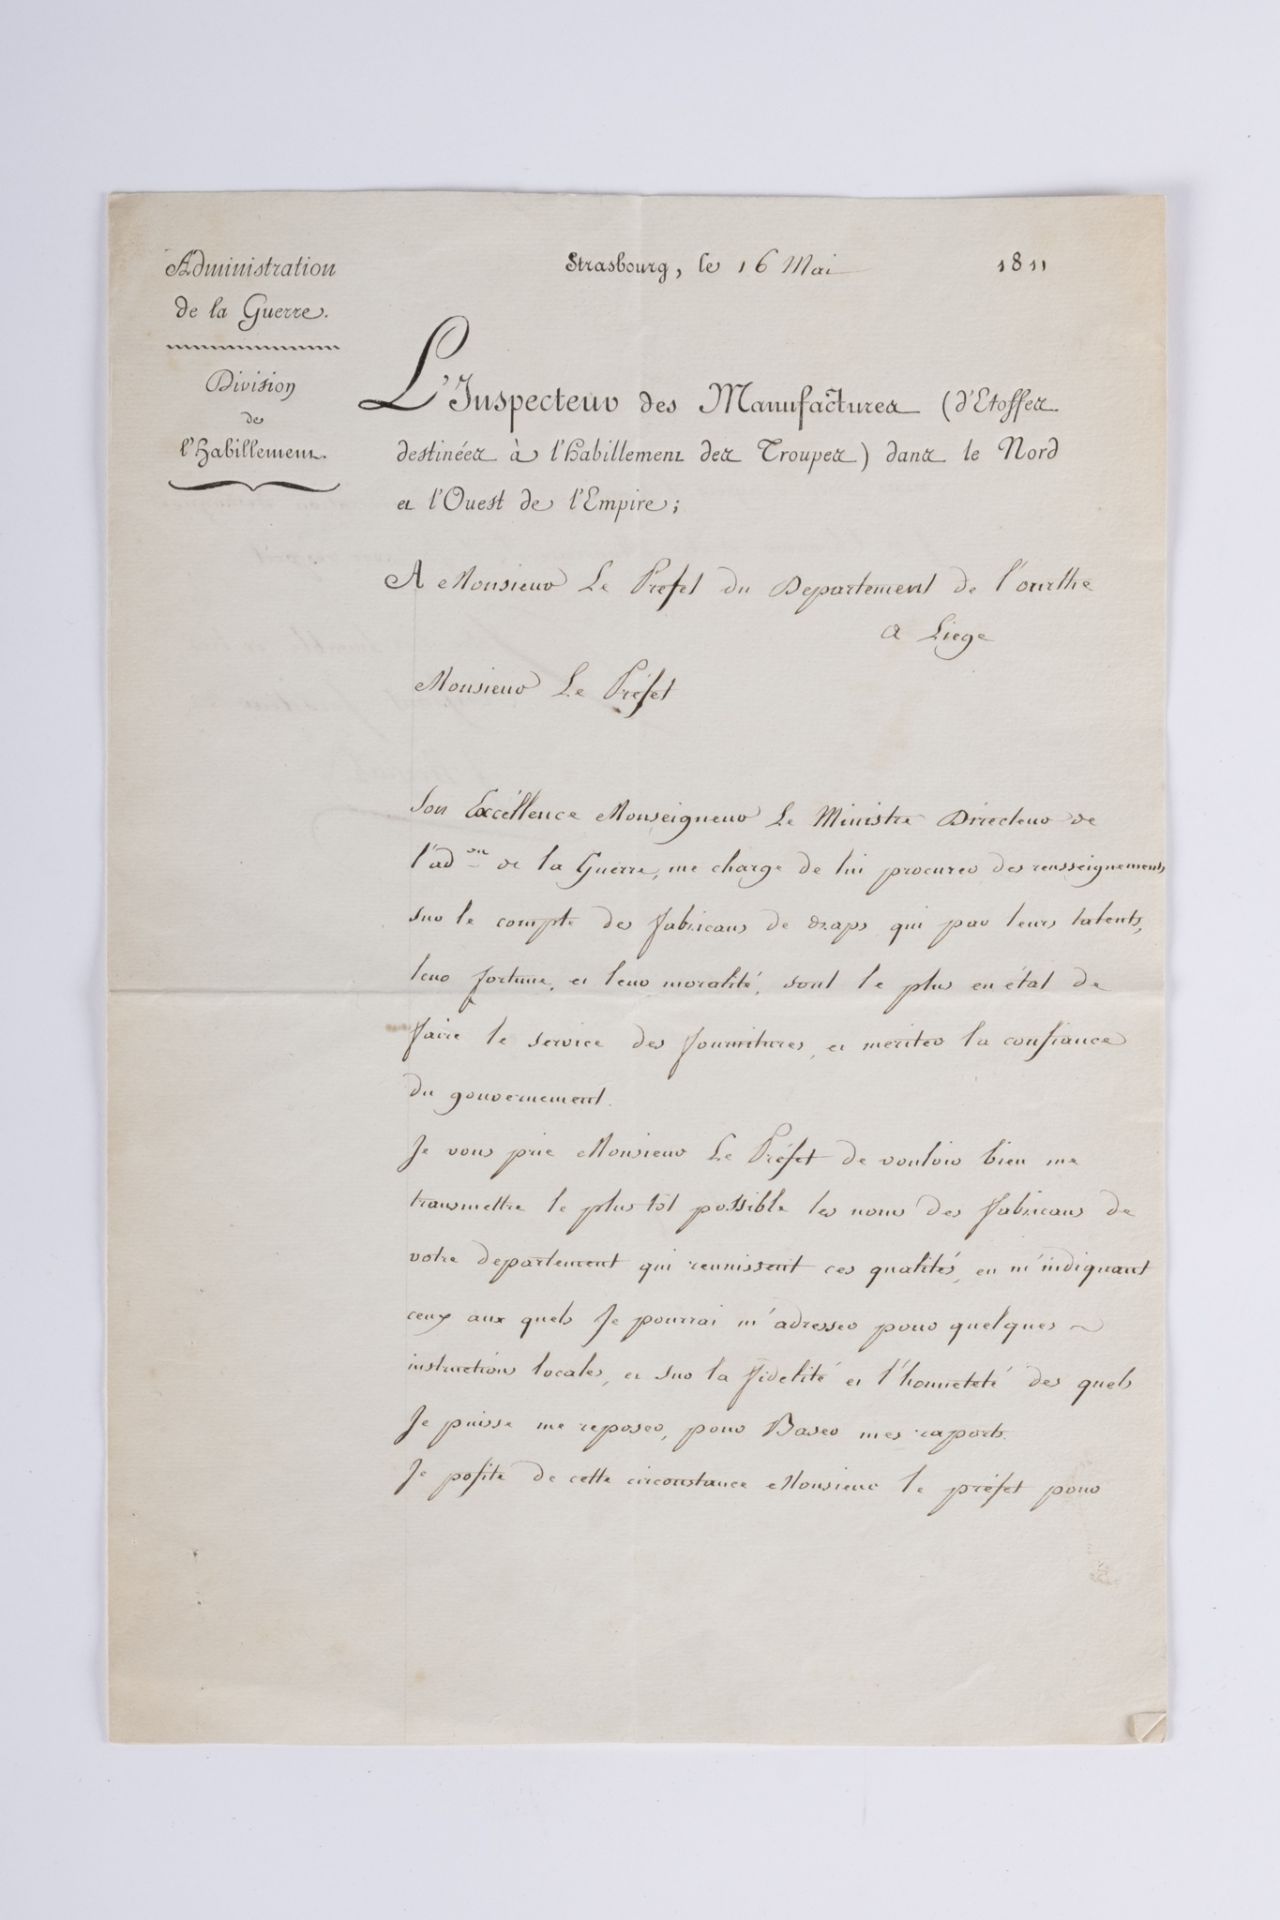 Administration
de la Guerre.
Division
de
l'habillement.
Strasbourg, le 16 Mai 1811
L'Inspecteur des Manufactures (d'Etoffes
destinées à l'habillement des Troupes) dans le Nord
et l'Ouest de l'Empire;
A Monsieur Le Prefet du Departement de l'ourthe
a Liege
Monsieur Le Préfet
Son Excéllence Monseigneur Le Ministre Directeur de
l'ad.on de la Guerre, me charge de lui procurer des rensseignements
sur le compte des fabricans de draps qui par leurs talents,
leur fortune, et leur moralité, sont le plus en état de
faire le service des fournitures, et meriter la confiance
du gouvernement.
Je vous prie Monsieur Le Préfet de vouloir bien me
transmettre le plus tôt possible les noms des fabricans de
votre departement qui reunissent ces qualités, en m'indiquant
ceux aux quels Je pourrai m'adresser pour quelques
instructions locales, et sur la fidelité et l'honneteté des quels
Je puisse me reposer, pour Baser mes raports.
Je pofite de cette circonstance Monsieur le préfet pour